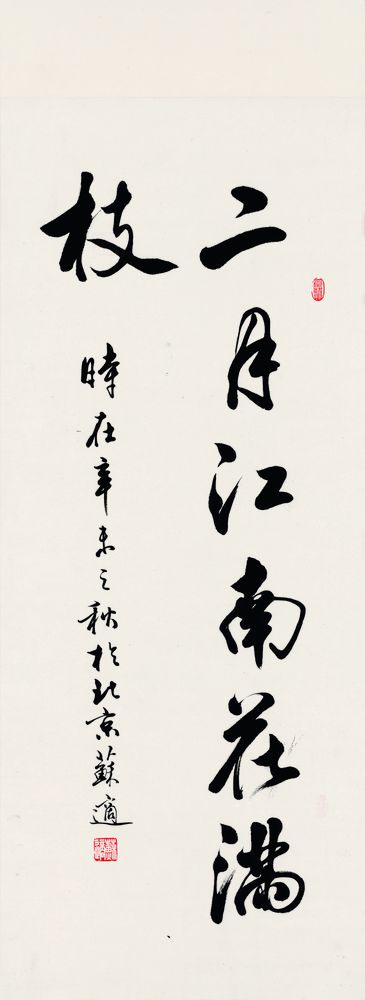 二月江南花满
枝
時在辛未之秋於北京蘇適